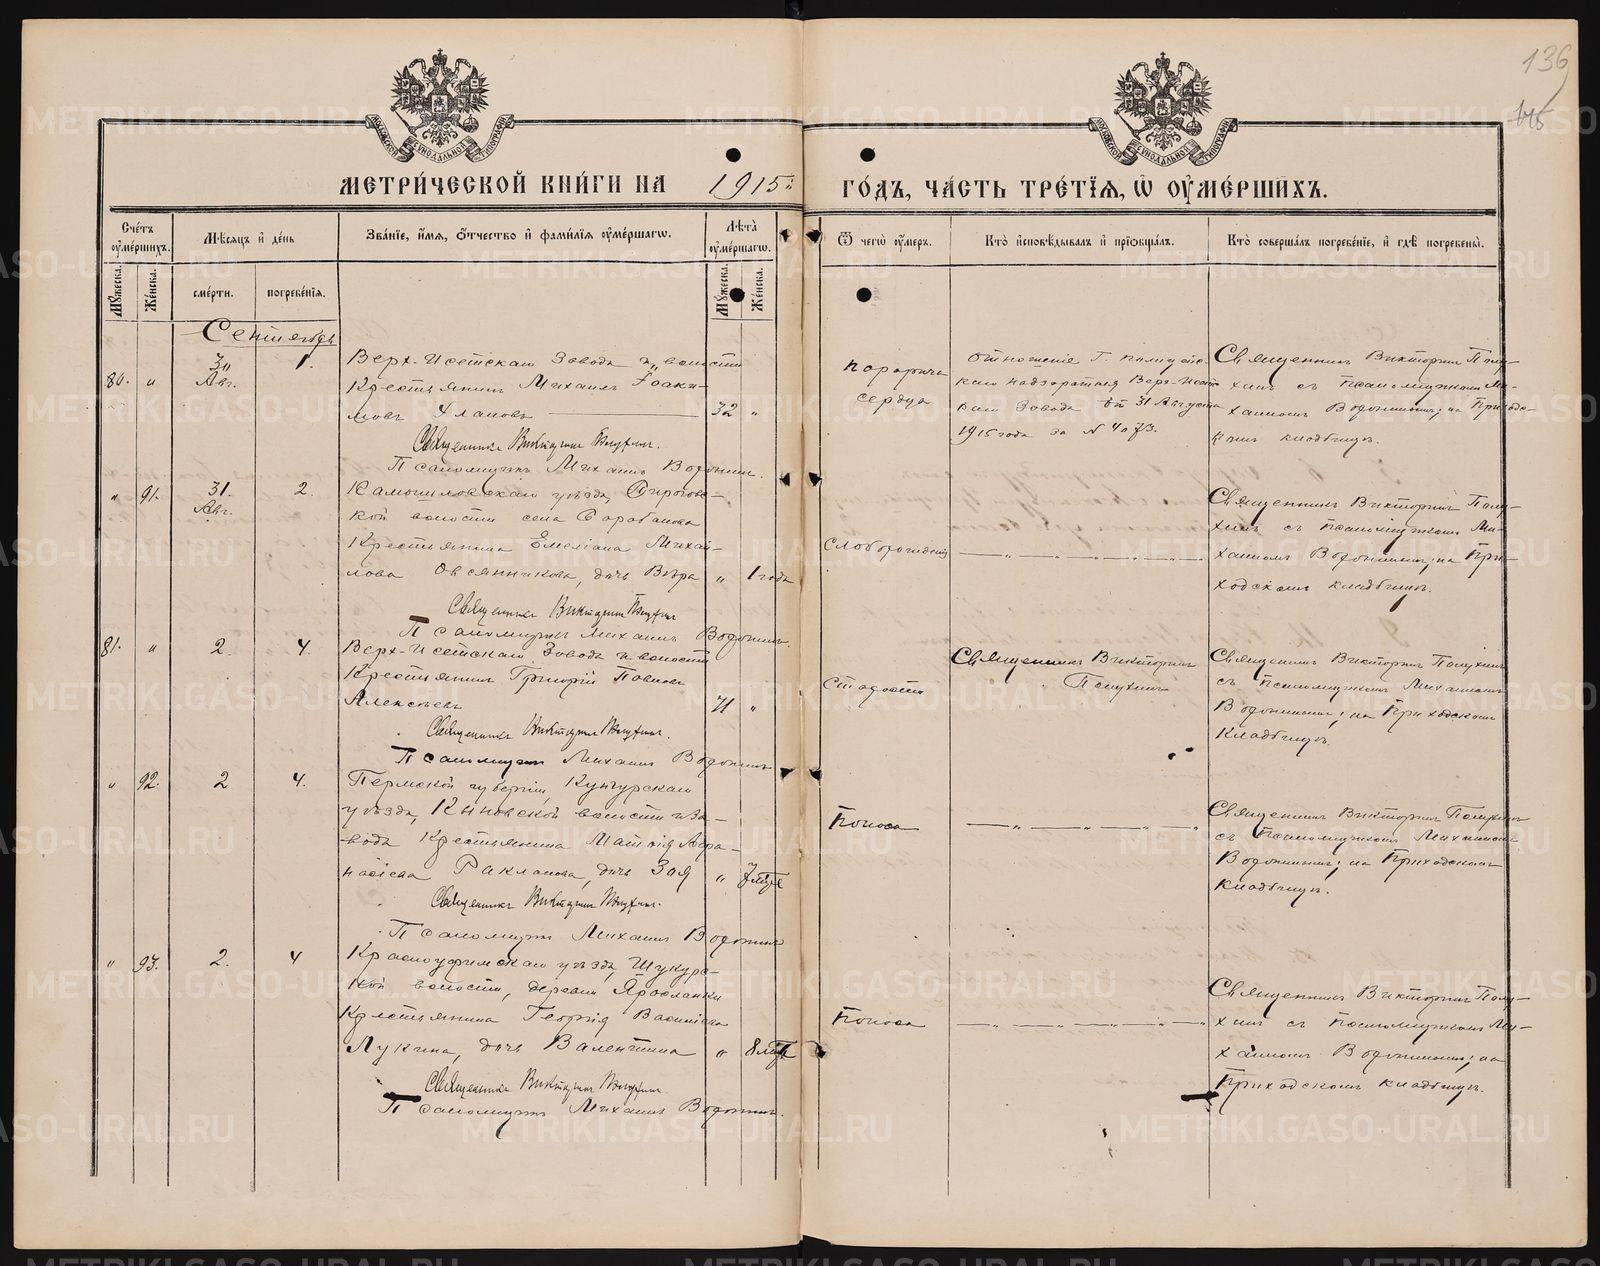 136
145
МОСКОВСКОЙ СѴНОДАЛЬНОЙ ТИПОГРАФІИ
МОСКОВСКОЙ СѴНОДАЛЬНОЙ ТИПОГРАФІИ
МЕТРИ́ЧЕСКОЙ КНИ́ГИ НА 1915 ГО́ДЪ, ЧА́СТЬ ТРЕ́ТІѦ, Ѡ҆ ОУ҆МЕ́РШИХЪ.
Сче́тъ оу҆ме́ршихъ.
Мѣ́сѧцъ и҆ де́нь
Зва́нїе, и҆́мѧ, ѻ҆́тчество и҆ фами́лїѧ оу҆ме́ршагѡ.
Лѣ́та оу҆ме́ршагѡ.
Ѿ чегѡ̀ оу҆́меръ.
Кто̀ и҆сповѣ́дывалъ и҆ прїѡбща́лъ.
Кто̀ соверша́лъ погребе́нїе, и҆ гдѣ̀ погребены̀.
Мꙋ́жеска. Же́нска. сме́рти. погребе́нїѧ. Мꙋ́жеска. Же́нска.
Сентябрь
80. „ 30 Авг. 1.
Верх-Исетскаго Завода и волости
Крестьянинъ Михаилъ Іоаки-
мовъ Улановъ 32 „
Священникъ Викторинъ Полухинъ.
Псаломщикъ Михаилъ Водонинъ.
сердца
Отношеніе Г. полицейс-
каго надзирателя Верх-Исетс
каго Завода отъ 31 Августа
1915 года за № 4073.
Священникъ Викторинъ Полу-
хинъ съ псаломщикомъ Ми-
хаиломъ Водонинымъ; на Приходс-
комъ кладбищѣ.
„ 91. 31. Авг. 2.
Камышловскаго уѣзда,
кой волости села
Крестьянина Емеліана Михай-
лова Овсянникова, дочь Вѣра „ 1 года
Священникъ Викторинъ Полухинъ
Псаломщикъ Михаилъ Водонинъ.
Слаборожденія
— „ — „ — „ —
Священникъ Викторинъ Полу-
хинъ съ псаломщикомъ Ми-
хаиломъ Водонинымъ; на При-
ходскомъ кладбищѣ.
81. „ 2. 4.
Верх-Исетскаго Завода и волости
Крестьянинъ Григорій Павловъ
Алексѣевъ 71 „
Священникъ Викторинъ Полухинъ.
Псаломщикъ Михаилъ Водонинъ
Старости
Священникъ Викторинъ
Полухинъ
Священникъ Викторинъ Полухинъ
съ псаломщикомъ Михаиломъ
Водонинымъ; на Приходскомъ
кладбищѣ.
„ 92. 2 4.
Пермской губерніи, Кунгурскаго
уѣзда, Кыновской волости и За-
вода Крестьянина Матѳія Аѳа-
насіева Ракланова, дочь Зоя „
Священникъ Викторинъ Полухинъ.
Псаломщикъ Михаилъ Водонинъ
Поноса
— „ — „ — „ — „
Священникъ Викторинъ Полухинъ
съ псаломщикомъ Михаиломъ
Водонинымъ; на Приходскомъ
кладбищѣ.
„ 93. 2. 4
Красноуфимскаго уѣзда,
кой волости, деревни Ярославки
Крестьянина Георгія Васильева
Лукина, дочь Валентина „ 8 мѣс
Священникъ Викторинъ Полухинъ
Псаломщикъ Михаилъ Водонинъ.
Поноса
— „ — „ — „ — „ —
Священникъ Викторинъ Полу-
хинъ съ псаломщикомъ Ми-
хаиломъ Водонинымъ; на
Приходскомъ кладбищѣ.
METRIKI.GASO-URAL.RU